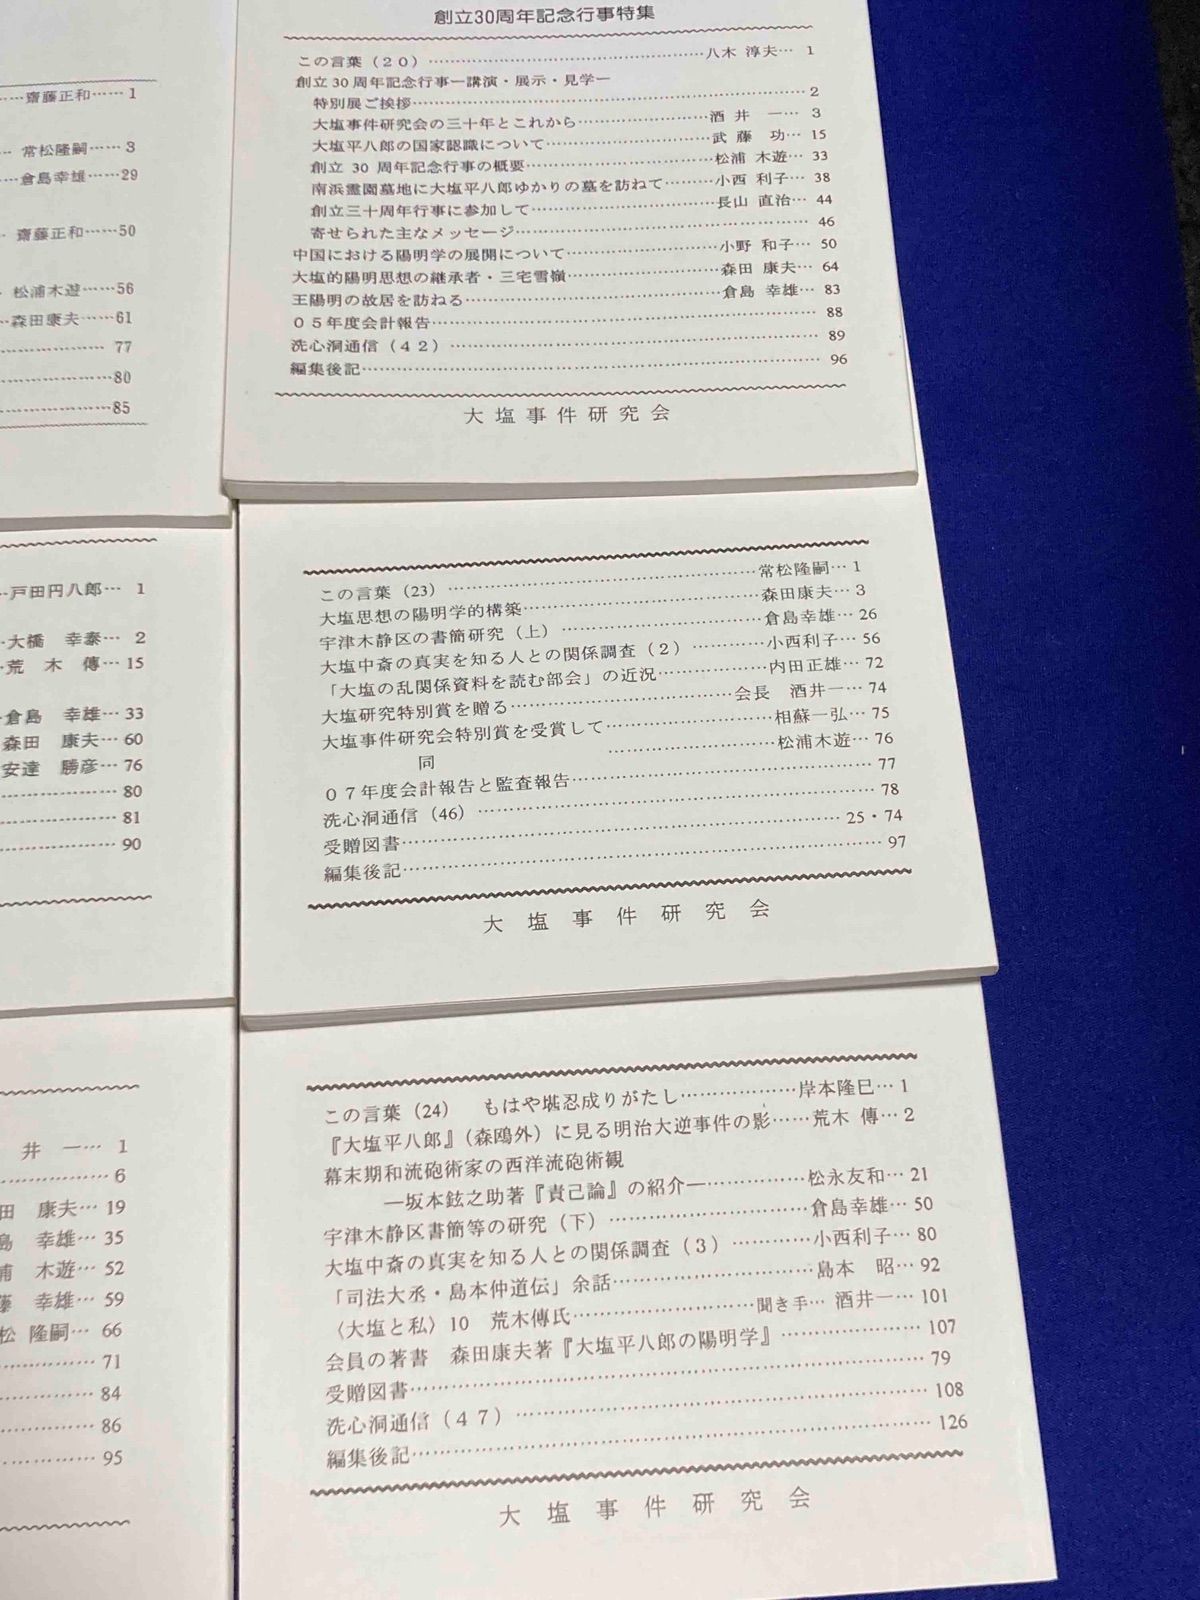 齋藤正和……1
常松隆嗣……3
倉島幸雄……29
齋藤正和……50
松浦木遊……56
森田康夫……61
77
80
85
創立30周年記念行事特集
この言葉（２０）…八木 淳夫… 1
創立 30 周年記念行事ー講演・展示・見学ー
特別展ご挨拶… 2
大塩事件研究会の三十年とこれから…酒 井 一… 3
大塩平八郎の国家認識について…武 藤 功… 15
創立 30 周年記念行事の概要…松浦 木遊… 33
南浜霊園墓地に大塩平八郎ゆかりの墓を訪ねて…小西 利子… 38
創立三十周年行事に参加して…長山 直治… 44
寄せられた主なメッセージ… 46
中国における陽明学の展開について…小野 和子… 50
大塩的陽明思想の継承者・三宅雪嶺…森田 康夫… 64
王陽明の故居を訪ねる…倉島 幸雄… 83
０５年度会計報告… 88
洗心洞通信（４２）… 89
編集後記… 96
大塩事件研究会
戸田円八郎… 1
大橋 幸泰… 2
荒 木 傳… 15
倉島 幸雄… 33
森田 康夫… 60
安達 勝彦… 76
80
81
90
この言葉（23）…常松隆嗣… 1
大塩思想の陽明学的構築…森田康夫… 3
宇津木静区の書簡研究（上）…倉島幸雄… 26
大塩中斎の真実を知る人との関係調査（２）…小西利子… 56
「大塩の乱関係資料を読む部会」の近況…内田正雄… 72
大塩研究特別賞を贈る…会長 酒井一… 74
大塩事件研究会特別賞を受賞して…相蘇一弘… 75
同…松浦木遊… 76
０７年度会計報告と監査報告… 77
洗心洞通信（46）… 78
受贈図書…25・74
編集後記… 97
大塩事件研究会
井 一… 1
6
田 康夫… 19
島 幸雄… 35
浦 木遊… 52
藤 幸雄… 59
松 隆嗣… 66
71
84
86
95
この言葉（24） もはや堪忍成りがたし…岸本隆巳… 1
『大塩平八郎』（森鴎外）に見る明治大逆事件の影…荒木 傳… 2
幕末期和流砲術家の西洋流砲術観
―坂本鉉之助著『責己論』の紹介―…松永友和… 21
宇津木静区書簡等の研究（下）…倉島幸雄… 50
大塩中斎の真実を知る人との関係調査（３）…小西利子… 80
「司法大丞・島本仲道伝」余話…島本 昭… 92
〈大塩と私〉10 荒木傳氏…聞き手… 酒井一… 101
会員の著書 森田康夫著『大塩平八郎の陽明学』… 107
受贈図書… 79
洗心洞通信（４７）… 108
編集後記… 126
大塩事件研究会